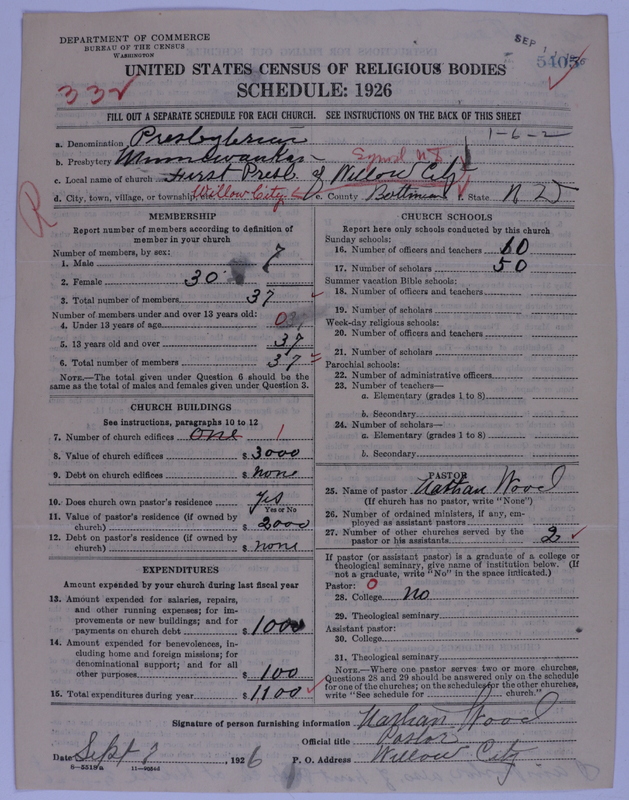 DEPARTMENT OF COMMERCE
BUREAU OF THE CENSUS
WASHINGTON
SEP
5405
UNITED STATES CENSUS OF RELIGIOUS BODIES
SCHEDULE: 1926
332
FILL OUT A SEPARATE SCHEDULE FOR EACH CHURCH. SEE INSTRUCTIONS ON THE BACK OF THIS SHEET
1-6-2
a. Denomination Presbyterian
b. Presbytery Minnewaukan Synod N.D.
c. Local name of church First Presb. of Willow City
d. City, town, village, or township, etc. Willow City e. County Bottineau f. State N D
R
MEMBERSHIP
Report number of members according to definition of
member in your church
Number of members, by sex:
1. Male 7
2. Female 30
3. Total number of members 37
Number of members under and over 13 years old:
4. Under 13 years of age 0
5. 13 years old and over 37
6. Total number of members 37
NOTE.—The total given under Question 6 should be the
same as the total of males and females given under Question 3.
CHURCH BUILDINGS
See instructions, paragraphs 10 to 12
7. Number of church edifices One 1
8. Value of church edifices $ 3000
9. Debt on church edifices $ None
10. Does church own pastor's residence Yes
Yes or No
11. Value of pastor's residence (if owned by
church) $ 2000
12. Debt on pastor's residence (if owned by
church) $ None
EXPENDITURES
Amount expended by your church during last fiscal year
13. Amount expended for salaries, repairs,
and other running expenses; for im-
provements or new buildings; and for
payments on church debt $ 1000
14. Amount expended for benevolences, in-
cluding home and foreign missions; for
denominational support; and for all
other purposes $ 100
15. Total expenditures during year $ 1100
CHURCH SCHOOLS
Report here only schools conducted by this church
Sunday schools:
16. Number of officers and teachers 10
17. Number of scholars 50
Summer vacation Bible schools:
18. Number of officers and teachers
19. Number of scholars
Week-day religious schools:
20. Number of officers and teachers
21. Number of scholars
Parochial schools:
22. Number of administrative officers
23. Number of teachers—
a. Elementary (grades 1 to 8)
b. Secondary
24. Number of scholars—
a. Elementary (grades 1 to 8)
b. Secondary
PASTOR
25. Name of pastor Nathan Wood
(If church has no pastor, write "None")
26. Number of ordained ministers, if any, em-
ployed as assistant pastors
27. Number of other churches served by the
pastor or his assistants 2
If pastor (or assistant pastor) is a graduate of a college or
theological seminary, give name of institution below. (If
not a graduate, write "No" in the space indicated.)
Pastor: 0
28. College No
29. Theological seminary
Assistant pastor:
30. College
31. Theological seminary
NOTE.—Where one pastor serves two or more churches,
Questions 28 and 29 should be answered only on the schedule
for one of the churches; on the schedules for the other churches,
write "See schedule for church."
Signature of person furnishing information Nathan Wood
Official title Pastor
Date Sept 7, 1926 P. O. Address Willow City
8-5518a 11-9056